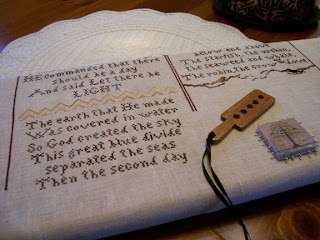 HE commanded that there
should be a day
And said Let there be
LIGHT
The earth that He made
Was covered in water
So God created the sky
This great blue divide
separated the seas
Then the second day
below and above
The starfish, the
the seaweed and whale
The robin, the